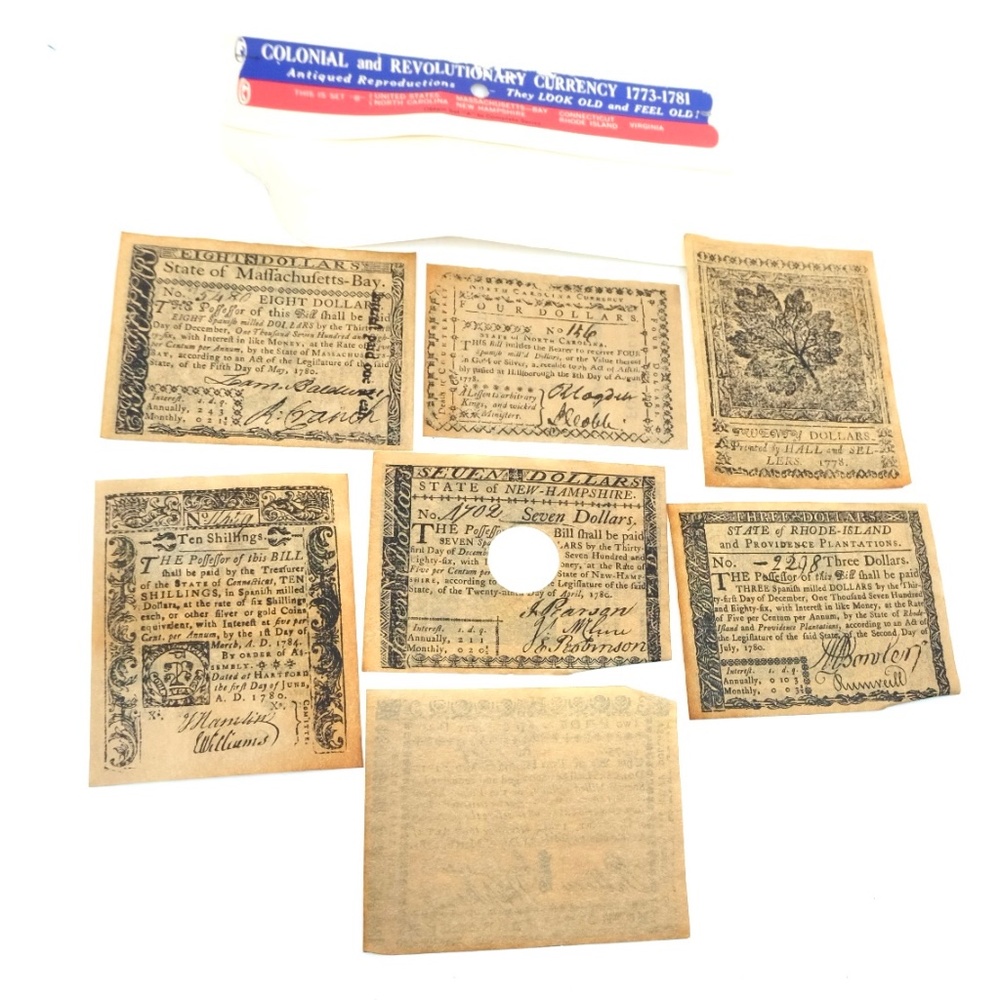 COLONIAL and REVOLUTIONARY CURRENCY 1773-1781
Antiqued Reproductions They LOOK OLD and FEEL OLD!
THIS IS SET UNITED STATES MASSACHUSETTS-BAY CONNECTICUT VIRGINIA
NORTH CAROLINA NEW HAMPSHIRE RHODE ISLAND
EIGHT DOLLARS
State of Massachusetts-Bay.
No. 5480 EIGHT DOLLAR
THE Possessor of this Bill shall be paid
EIGHT Spanish milled DOLLARS by the Thirty
Day of December, One Thousand Seven Hundred and
ty-six, with Interest in like Money, at the Rate of
per Centum per Annum, by the State of MASSACHUSETTS
BAY, according to an Act of the Legislature of the said
State, of the Fifth Day of May, 1780.
R. Cranch
Interest. s. d. q.
Annually, 2 4 3
Monthly, 0 2 1
NORTH CAROLINA CURRENCY
FOUR DOLLARS
No 146
STATE of NORTH CAROLINA.
THIS Bill intitles the Bearer to receive FOUR
Spanish mill'd Dollars, or the Value thereof
in Gold or Silver, according to an Act of Assem
bly passed at Hillsborough the 8th Day of August
1778.
A Lesson to arbitrary
Kings, and wicked
Ministers.
J Cobb
DOLLARS.
Printed by HALL and SEL-
LERS. 1778.
No.
Ten Shillings.
THE Possessor of this BILL
shall be paid by the Treasurer
of the STATE of Connecticut, TEN
SHILLINGS, in Spanish milled
Dollars, at the rate of six Shillings
each, or other silver or gold Coins
equivalent, with Interest at five per
Cent. per Annum, by the 1st Day of
March, A. D. 1784.
BY ORDER of As-
SEMBLY.
Dated at HARTFORD
the first Day of JUNE,
A. D. 1780.
Xs. Xs.
J Hamlin
EWilliams
COMITTE.
SEVEN DOLLARS
STATE of NEW-HAMPSHIRE.
No. 1702 Seven Dollars.
THE Possess Bill shall be paid
SEVEN Spa LARS by the Thirty-
first Day of Decem Seven Hundred and
Eighty-six, with I oney, at the Rate of
Five per Centum per State of NEW-HAMP-
SHIRE, according to Legislature of the said
State, of the Twenty-nin Day of April, 1780.
J. Pearson
J McClure
J Robinson
Interest. s. d. q.
Annually,
Monthly, 0 2 0
THREE DOLLARS.
STATE of RHODE-ISLAND
and PROVIDENCE PLANTATIONS.
No. -2298 Three Dollars.
THE Possessor of this Bill shall be paid
THREE Spanish milled DOLLARS by the Thir-
ty-first Day of December, One Thousand Seven Hundred
and Eighty-six, with Interest in like Money, at the Rate
of Five per Centum per Annum, by the State of Rhode
Island and Providence Plantations, according to an Act of
the Legislature of the said State, of the Second Day of
July, 1780.
Bowler
Rumreill
Interest. s. d. q.
Annually, 0 10 3
Monthly, 0 0 3